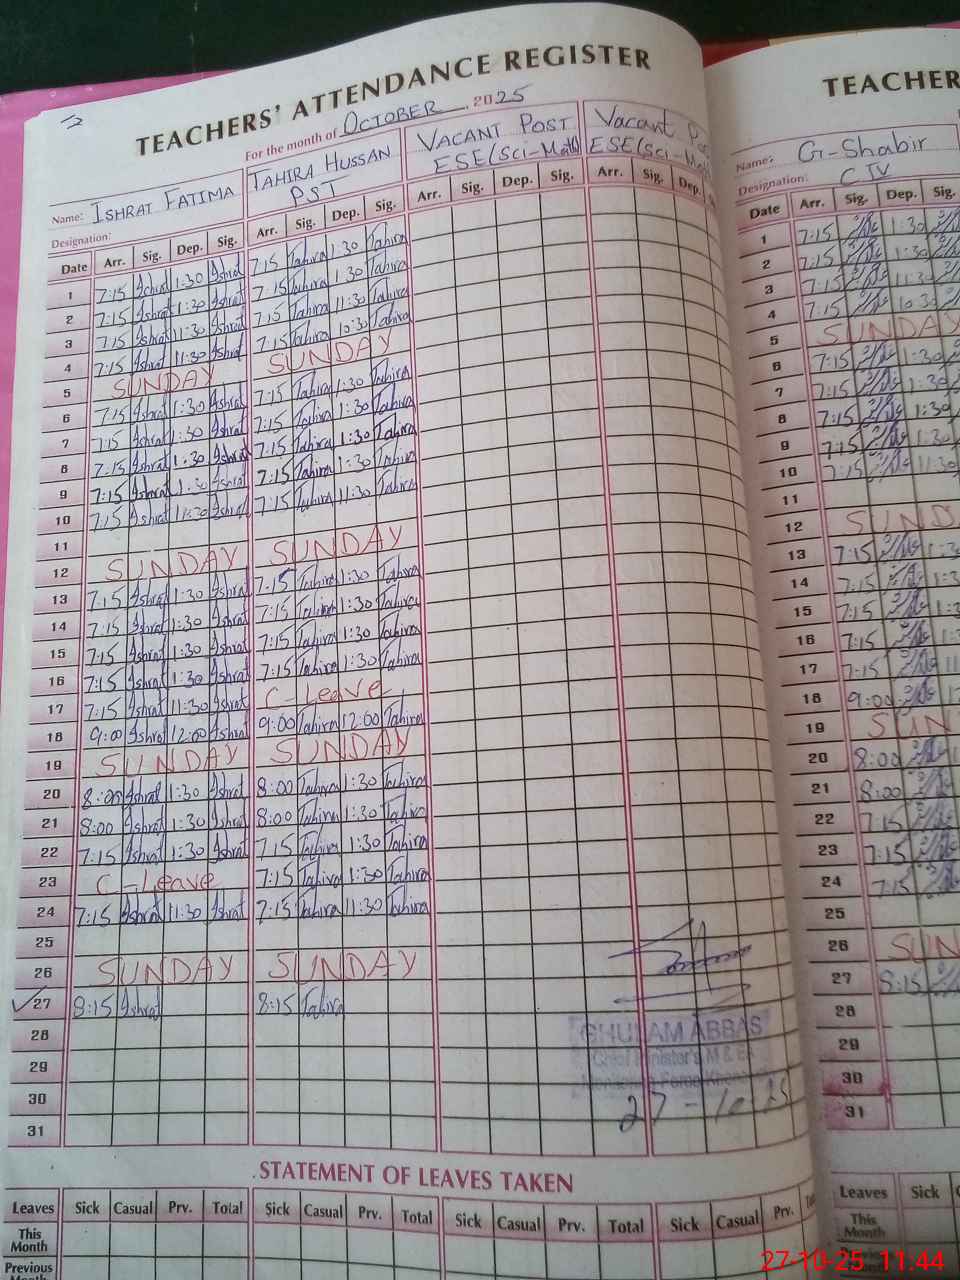 TEACHERS' ATTENDANCE REGISTER
For the month of OCTOBER, 2025
Name: ISHRAT FATIMA TAHIRA HUSSAN VACANT POST Vacant
Designation: PST ESE(Sci-Math) ESE(Sci-Math)
Date Arr. Sig. Dep. Sig. Arr. Sig. Dep. Sig. Arr. Sig. Dep. Sig. Arr. Sig. Dep.
1 7:15 Ishrat 1:30 Ishrat 7:15 Tahira 1:30 Tahira
2 7:15 Ishrat 1:30 Ishrat 7:15 Tahira 1:30 Tahira
3 7:15 Ishrat 11:30 Ishrat 7:15 Tahira 11:30 Tahira
4 7:15 Ishrat 11:30 Ishrat 7:15 Tahira 10:30 Tahira
5 SUNDAY SUNDAY
6 7:15 Ishrat 1:30 Ishrat 7:15 Tahira 1:30 Tahira
7 7:15 Ishrat 1:30 Ishrat 7:15 Tahira 1:30 Tahira
8 7:15 Ishrat 1:30 Ishrat 7:15 Tahira 1:30 Tahira
9 7:15 Ishrat 1:30 Ishrat 7:15 Tahira 1:30 Tahira
10 7:15 Ishrat 11:30 Ishrat 7:15 Tahira 11:30 Tahira
11
12 SUNDAY SUNDAY
13 7:15 Ishrat 1:30 Ishrat 7:15 Tahira 1:30 Tahira
14 7:15 Ishrat 1:30 Ishrat 7:15 Tahira 1:30 Tahira
15 7:15 Ishrat 1:30 Ishrat 7:15 Tahira 1:30 Tahira
16 7:15 Ishrat 1:30 Ishrat 7:15 Tahira 1:30 Tahira
17 7:15 Ishrat 11:30 Ishrat C-Leave
18 9:00 Ishrat 12:00 Ishrat 9:00 Tahira 12:00 Tahira
19 SUNDAY SUNDAY
20 8:00 Ishrat 1:30 Ishrat 8:00 Tahira 1:30 Tahira
21 8:00 Ishrat 1:30 Ishrat 8:00 Tahira 1:30 Tahira
22 7:15 Ishrat 1:30 Ishrat 7:15 Tahira 1:30 Tahira
23 C-Leave 7:15 Tahira 1:30 Tahira
24 7:15 Ishrat 11:30 Ishrat 7:15 Tahira 11:30 Tahira
25
26 SUNDAY SUNDAY
27 8:15 Ishrat 8:15 Tahira
28
29
30
31
GHULAM ABBAS
Chief Minister's M & E
Monitoring Force
27-10-25
STATEMENT OF LEAVES TAKEN
Leaves Sick Casual Prv. Total Sick Casual Prv. Total Sick Casual Prv. Total Sick Casual Prv.
This Month
Previous
TEACHER
Name: G-Shabir
Designation: CTV
Date Arr. Sig. Dep. Sig.
1 7:15 1:30
2 7:15 1:30
3 7:15 11:30
4 7:15 10:30
5 SUNDAY
6 7:15 1:30
7 7:15 1:30
8 7:15 1:30
9 7:15 1:30
10 7:15 11:30
11
12 SUND
13 7:15
14 7:15
15 7:15
16 7:15
17 7:15
18 9:00
19 SUN
20 8:00
21 8:00
22 7:15
23 7:15
24 7:15
25
26 SUN
27 8:15
28
29
30
31
Leaves Sick
This Month
Previous
27-10-25 11:44